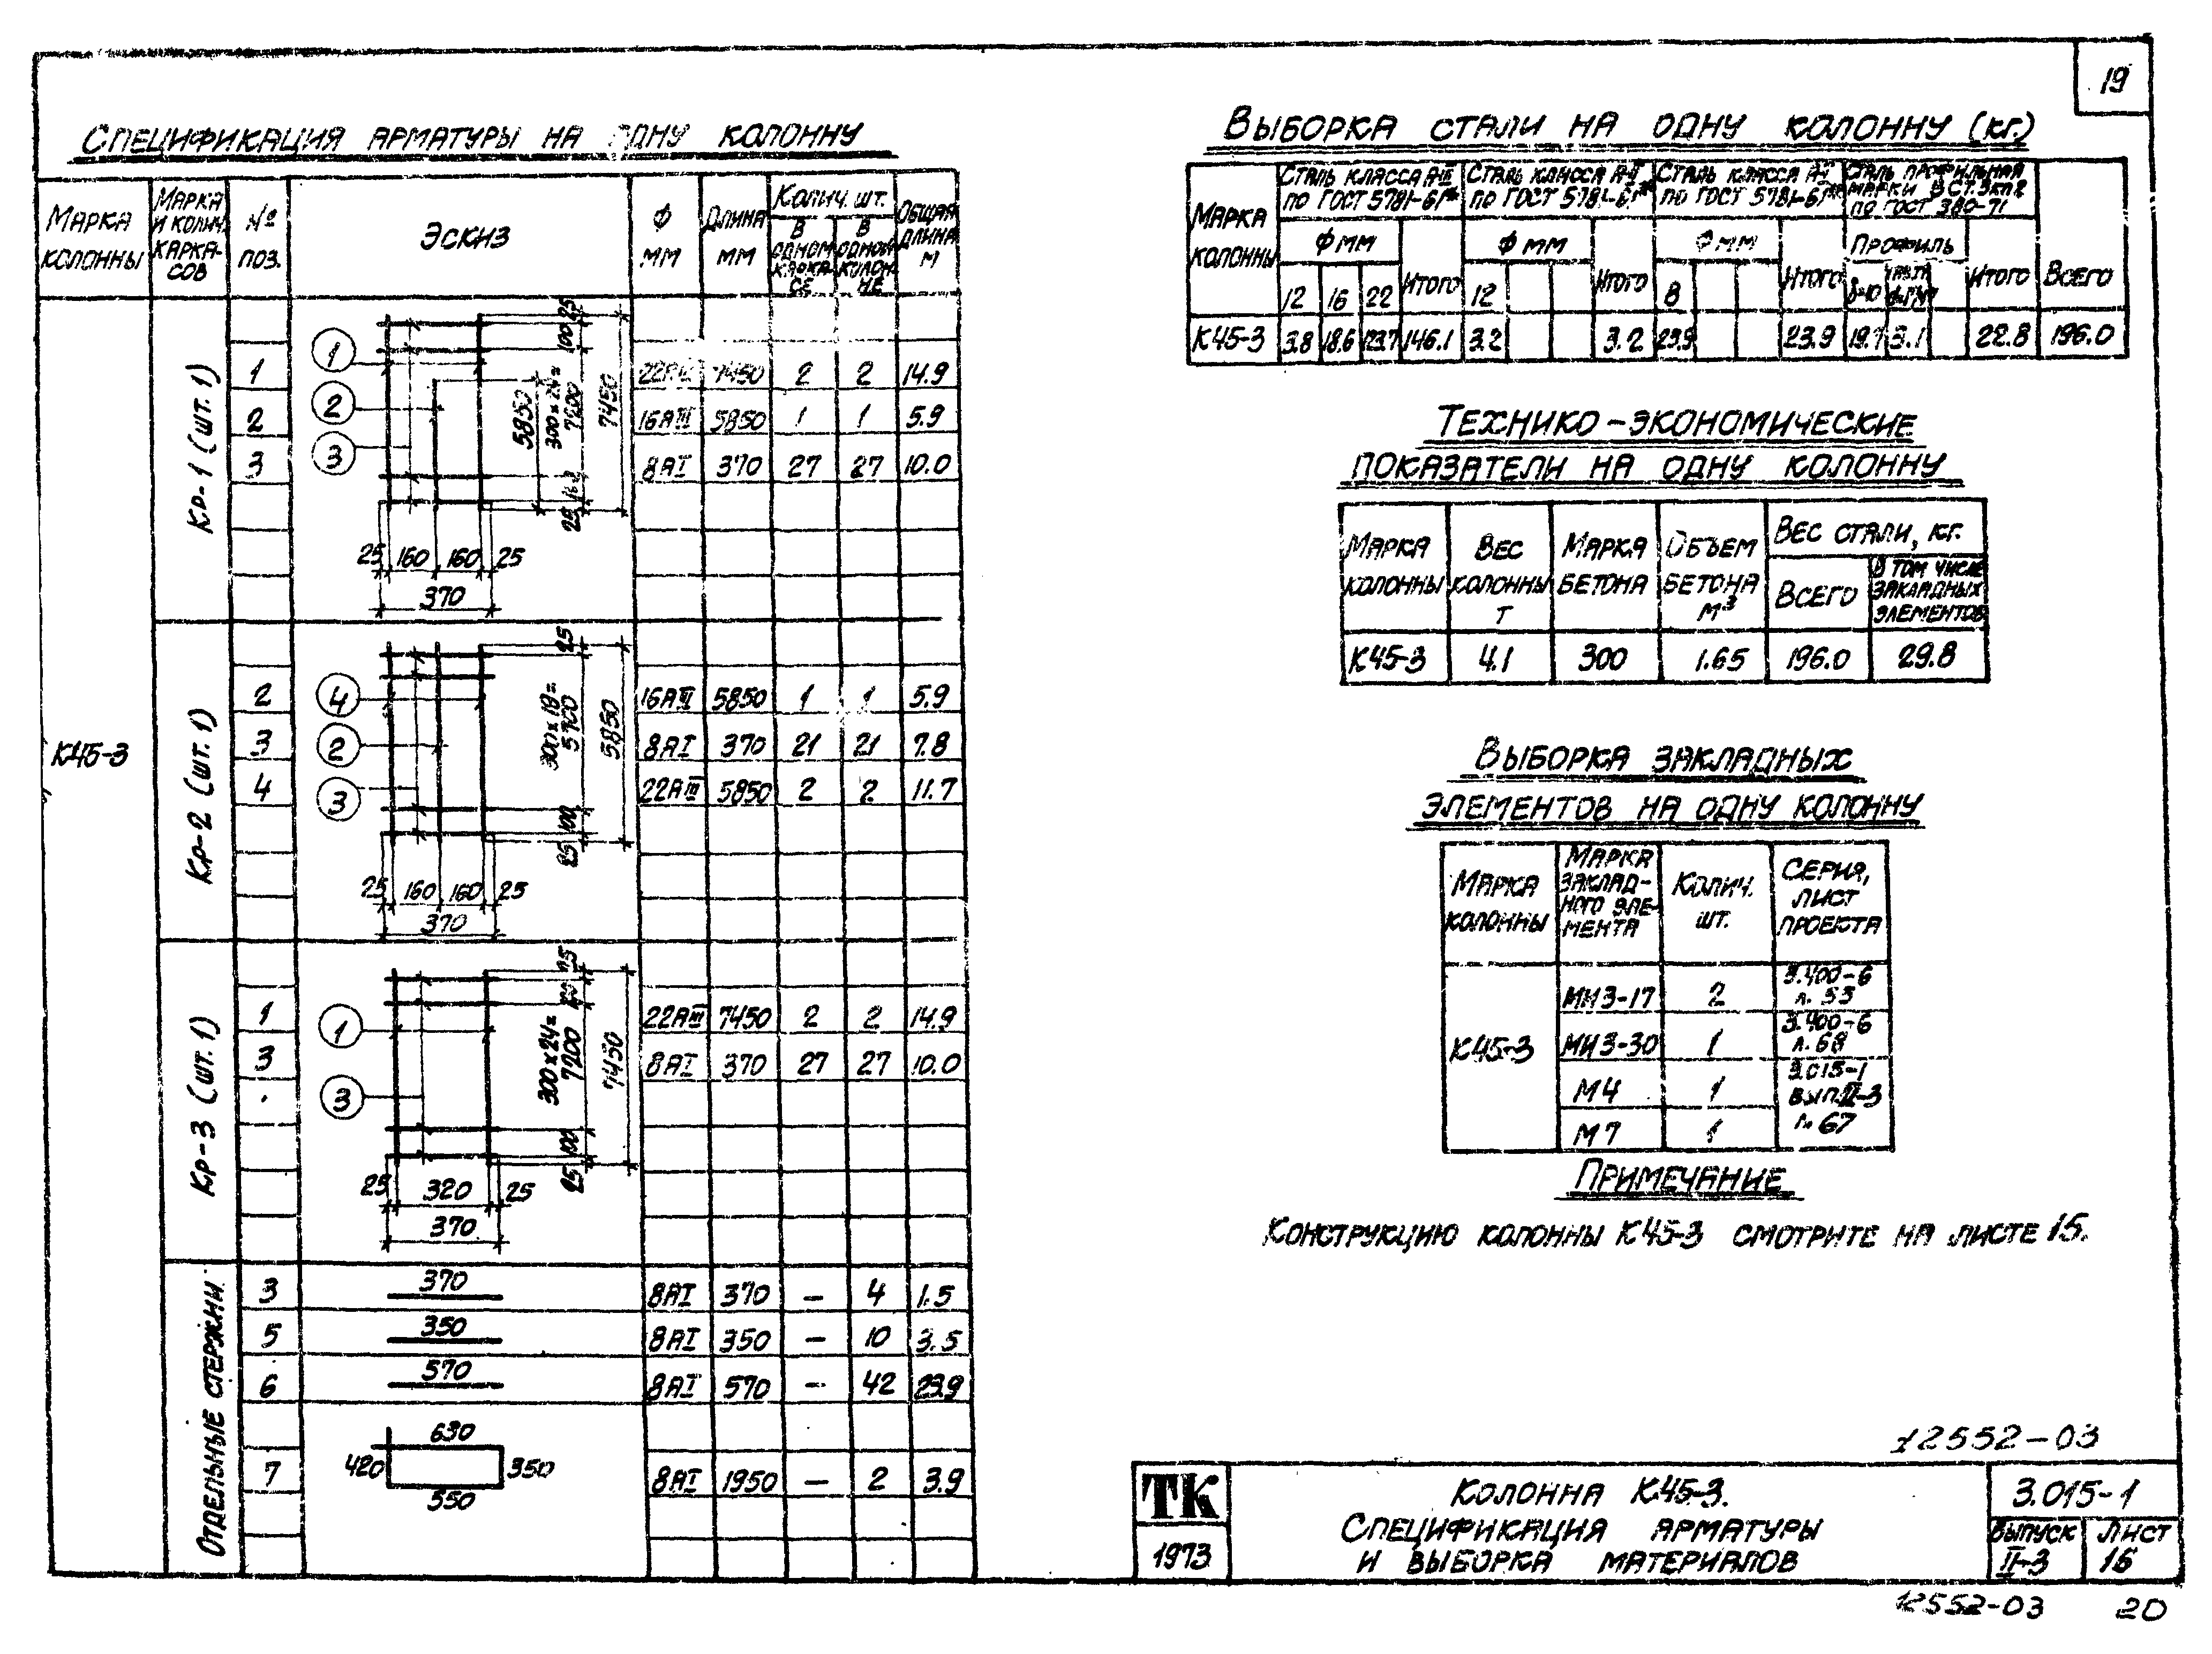 19
Спецификация арматуры на одну колонну
Марка колонны
Марка и колич. каркасов
№ поз.
Эскиз
Ф мм
Длина мм
Колич. шт.
в одном каркасе
в одной колонне
Общая длина м
К45-3
Кр-1 (шт. 1)
1 22АIII 7450 2 2 14.9
2 16АIII 5850 1 1 5.9
3 8АI 370 27 27 10.0
1
2
3
25 100 300×24= 7200 7450 5850 25
25 160 160 25
370
Кр-2 (шт. 1)
2 16АIII 5850 1 1 5.9
3 8АI 370 21 21 7.8
4 22АIII 5850 2 2 11.7
4
2
3
25 300×19= 5700 5850 100 25
25 160 160 25
370
Кр-3 (шт. 1)
1 22АIII 7450 2 2 14.9
3 8АI 370 27 27 10.0
1
3
300×24= 7200 7450 100 25
25 320 25
370
Отдельные стержни
3 370 8АI 370 – 4 1.5
5 350 8АI 350 – 10 3.5
6 570 8АI 570 – 42 23.9
7 630 420 350 550 8АI 1950 – 2 3.9
Выборка стали на одну колонну (кг.)
Марка колонны
Сталь класса А-III по ГОСТ 5781-61*
Сталь класса А-II по ГОСТ 5781-61*
Сталь класса А-I по ГОСТ 5781-61*
Сталь профильная марки В Ст.3кп2 по ГОСТ 380-71
Ф мм Итого Ф мм Итого Ф мм Итого Профиль Итого Всего
12 16 22 12 8 δ=10
К45-3 3.8 18.6 123.7 146.1 3.2 3.2 23.9 23.9 19.7 3.1 22.8 196.0
Технико-экономические
показатели на одну колонну
Марка колонны
Вес колонны т
Марка бетона
Объем бетона м³
Вес стали, кг.
Всего
в том числе закладных элементов
К45-3 4.1 300 1.65 196.0 29.8
Выборка закладных
элементов на одну колонну
Марка колонны
Марка закладного элемента
Колич. шт.
Серия, лист проекта
К45-3
МН3-17 2 3.400-6 л. 53
МН3-30 1 3.400-6 л. 68
М4 1 3.015-1 вып. II-3 л. 67
М7 1
Примечание
Конструкцию колонны К45-3 смотрите на листе 15.
12552-03
ТК
1973
Колонна К45-3.
Спецификация арматуры
и выборка материалов
3.015-1
Выпуск II-3
Лист 16
12552-03 20